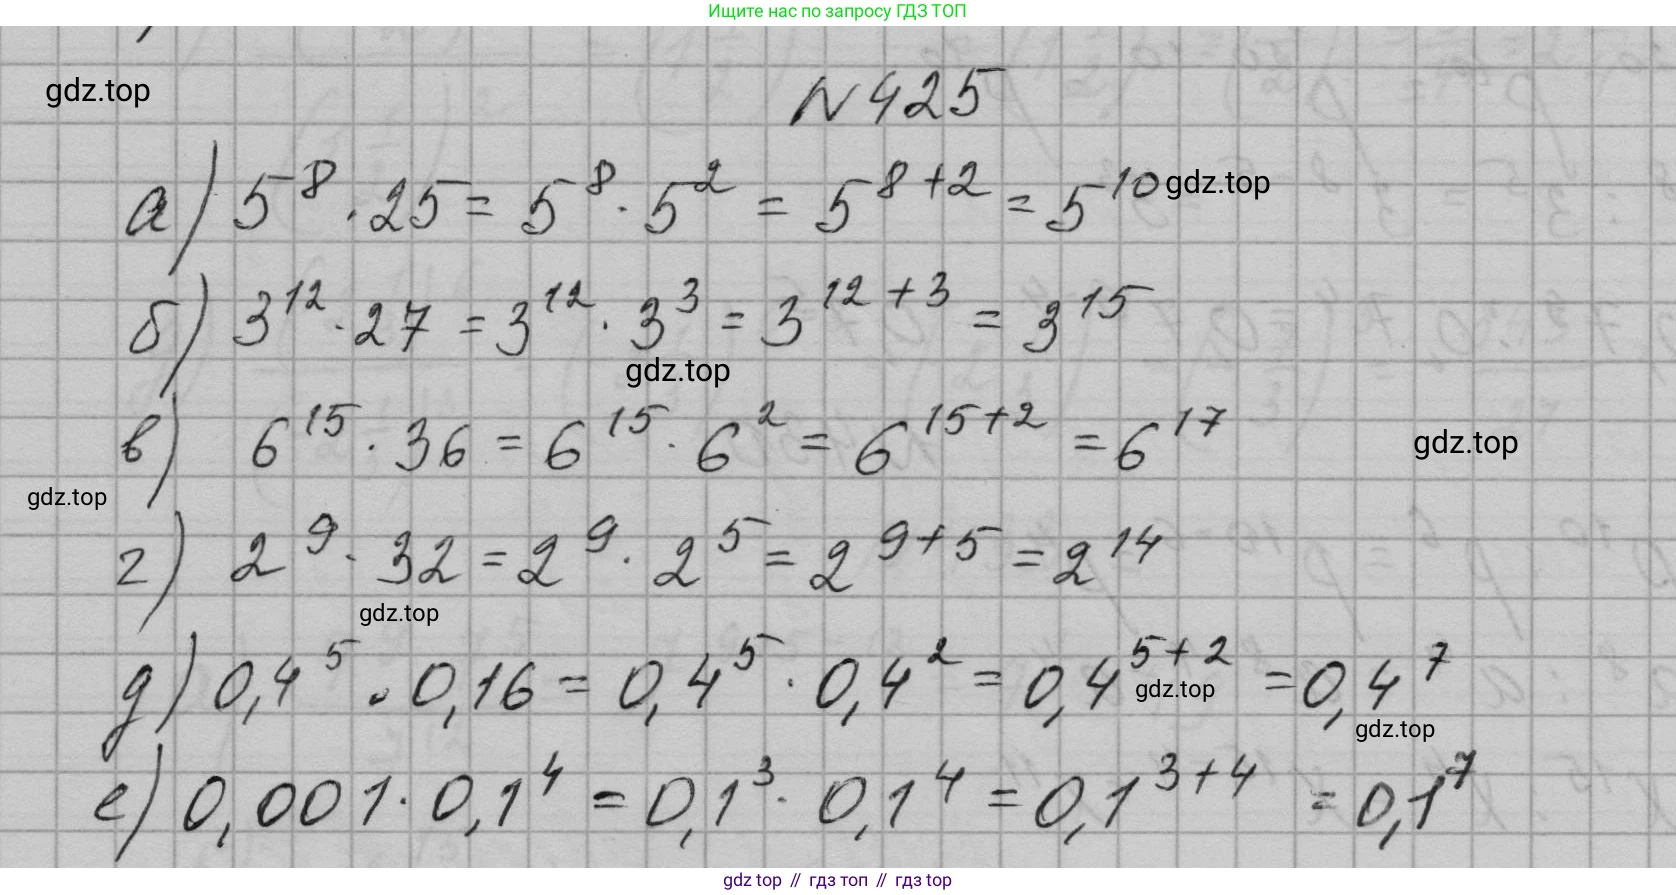 Ищите нас по запросу ГДЗ ТОП
gdz.top
N 425
а) 5⁸ · 25 = 5⁸ · 5² = 5⁸⁺² = 5¹⁰ gdz.top
б) 3¹² · 27 = 3¹² · 3³ = 3¹²⁺³ = 3¹⁵
gdz.top
в) 6¹⁵ · 36 = 6¹⁵ · 6² = 6¹⁵⁺² = 6¹⁷
gdz.top
gdz.top
г) 2⁹ · 32 = 2⁹ · 2⁵ = 2⁹⁺⁵ = 2¹⁴
gdz.top
д) 0,4⁵ · 0,16 = 0,4⁵ · 0,4² = 0,4⁵⁺² = 0,4⁷
gdz.top
gdz.top
е) 0,001 · 0,1⁴ = 0,1³ · 0,1⁴ = 0,1³⁺⁴ = 0,1⁷
gdz top // гдз топ // гдз top